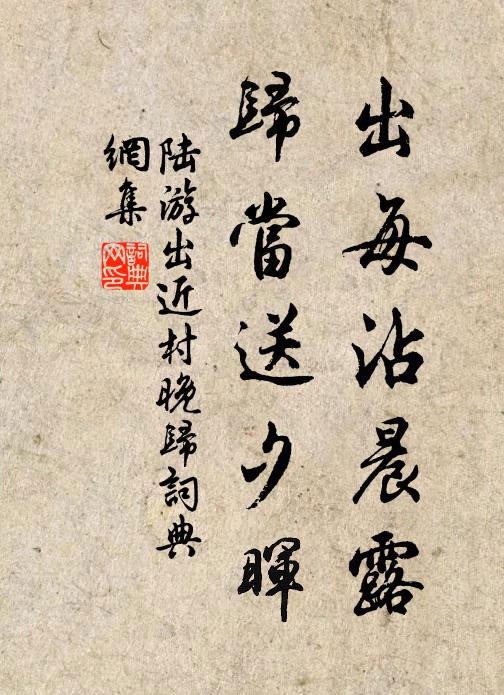 出每沾晨露
歸當送夕暉
陸游出近村晚歸詞典
網集
詞典
网印